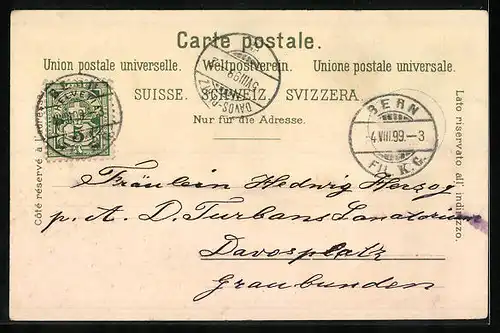 Carte postale.
Union postale universelle. Weltpostverein. Unione postale universale.
SUISSE. SCHWEIZ. SVIZZERA.
Nur für die Adresse.
Côté réservé à l'adresse.
Lato riservato all' indirizzo.
HELVETIA
5
BERN
4.VIII.99.–3
BERN
4.VIII.99.–3
DAVOS-PLATZ
VIII.99
Fräulein Hedwig Herzog
p. A. D. Turbans Sanatorium
Davosplatz
Graubunden